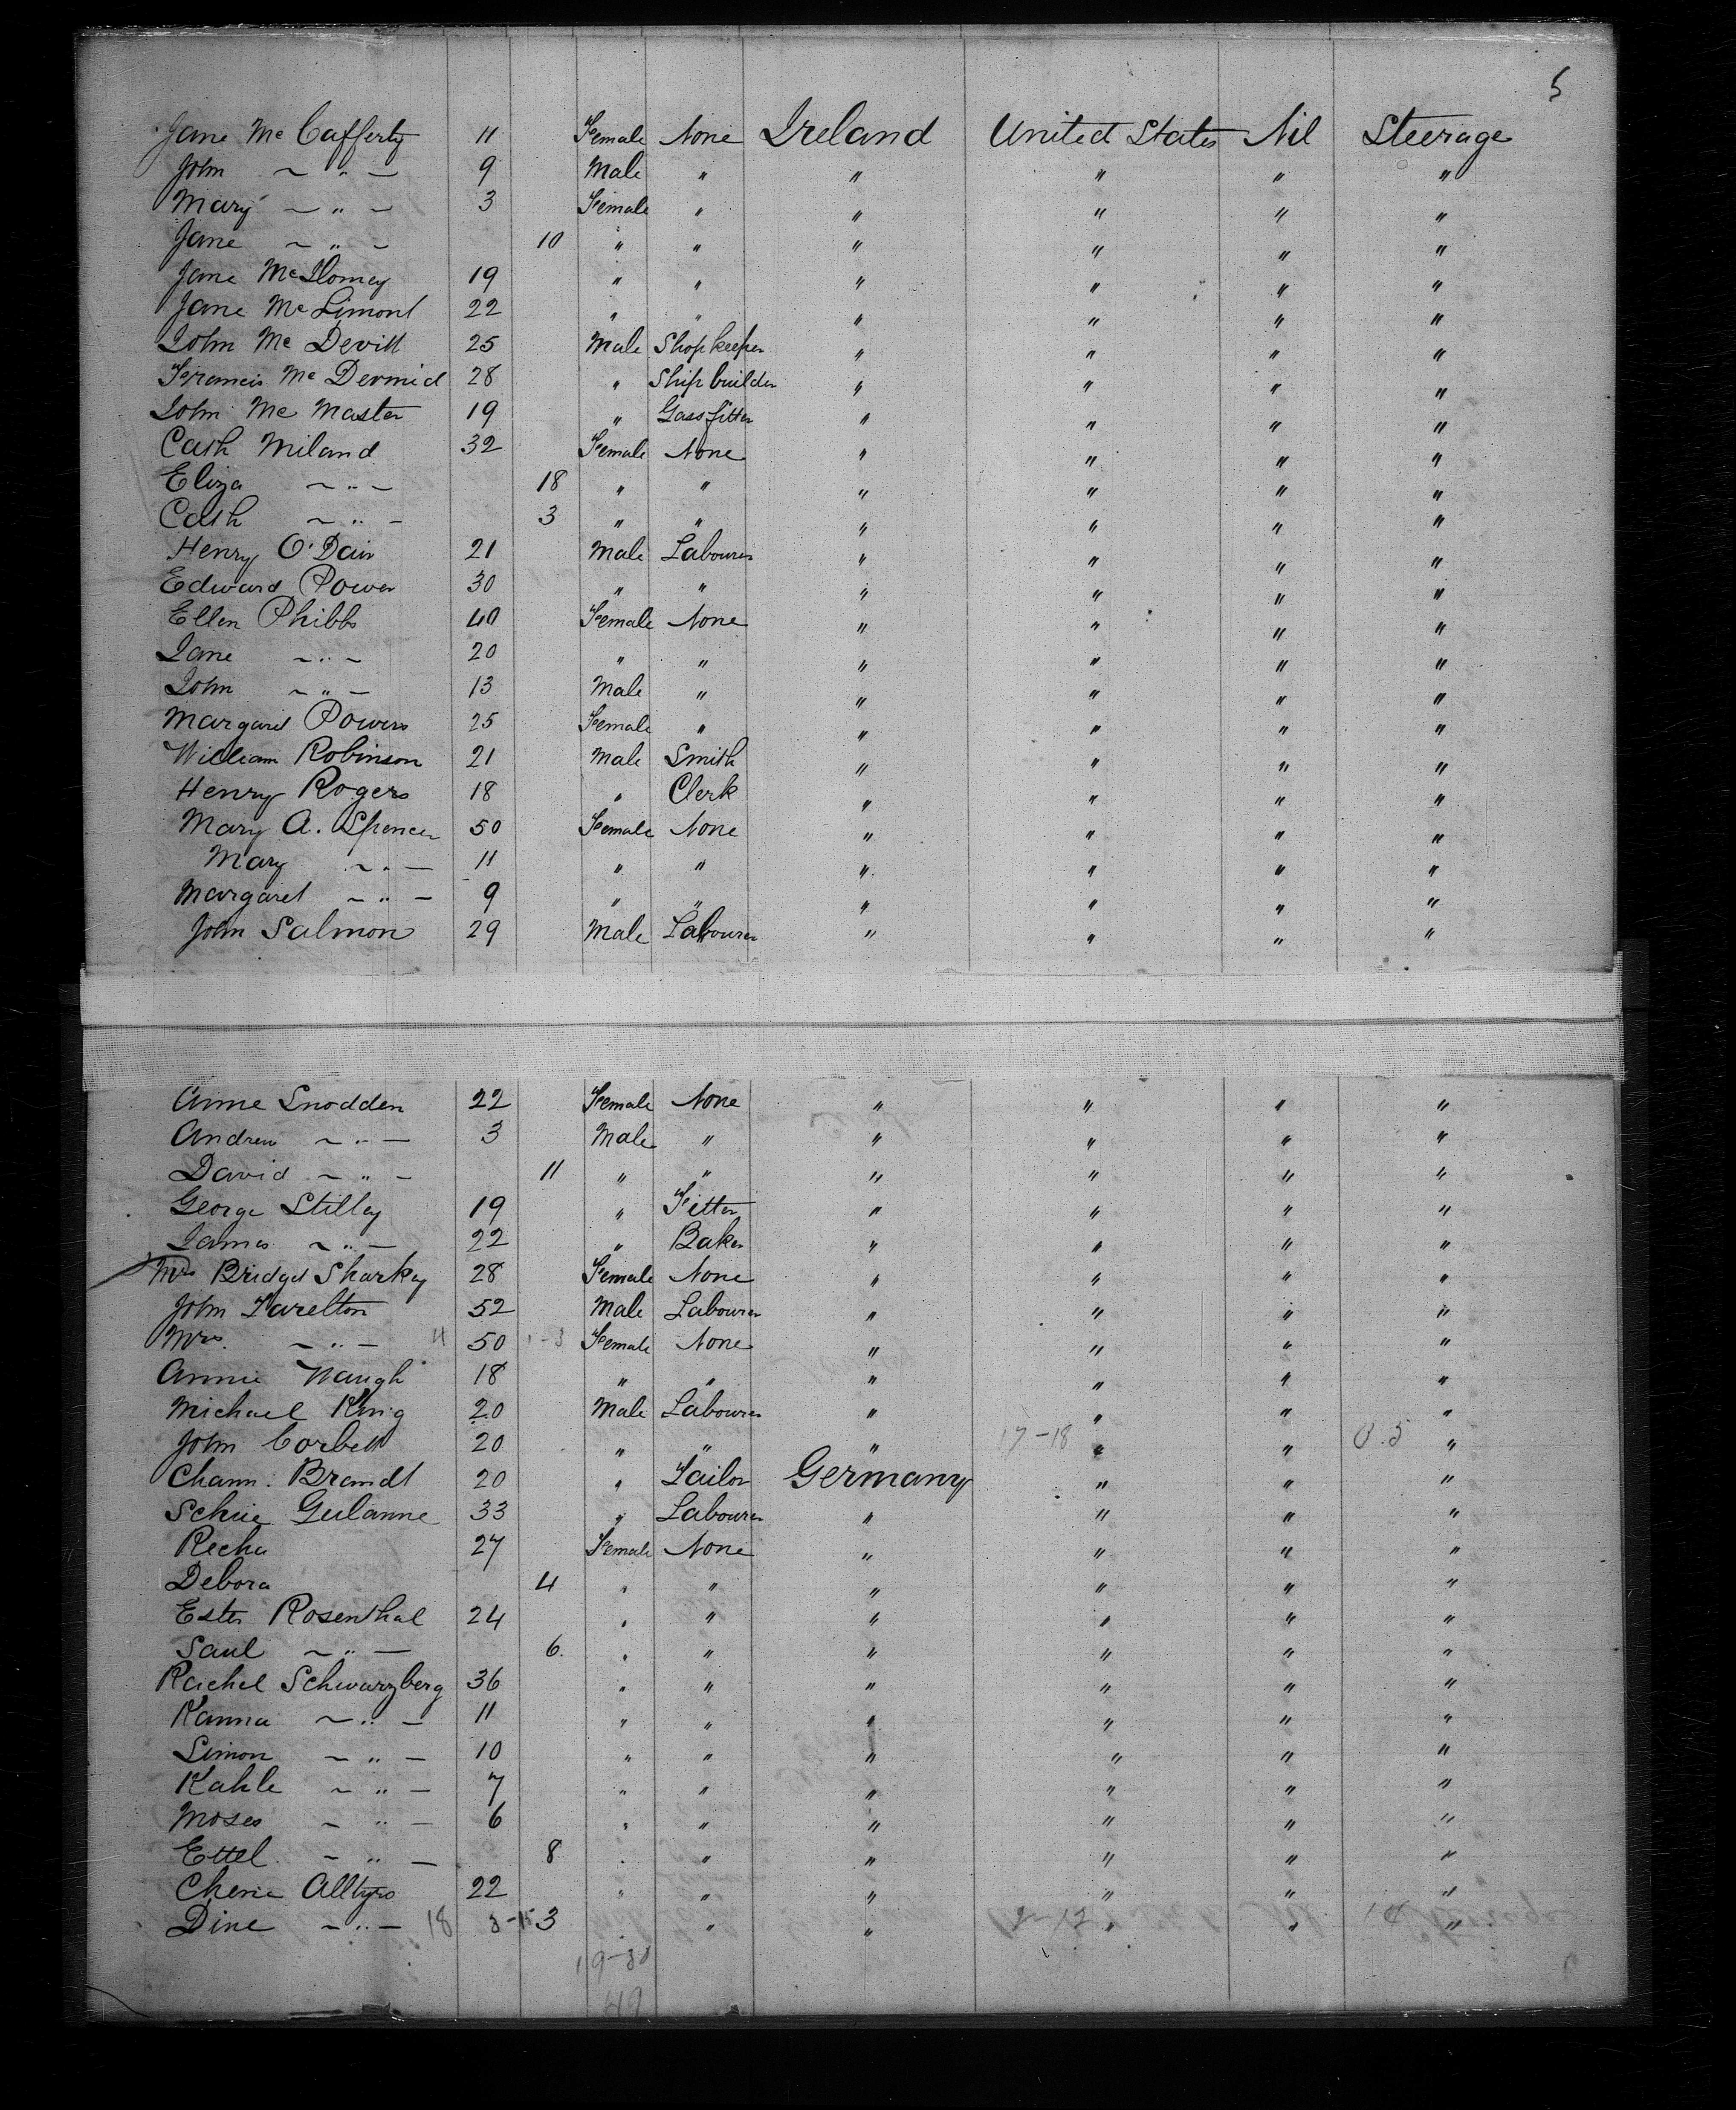 5
Jane Mc Cafferty 11 Female None Ireland United States Nil Steerage
John ~ " — 9 Male " " " " "
Mary ~ " ~ 3 Female " " " " "
Jane ~ " ~ 10 " " " " " "
Jane McIlomey 19 " " " " " "
Jane Mc Limont 22 " " " " " "
John Mc Devitt 25 Male Shop keeper " " " "
Francis Mc Dermid 28 " Ship builder " " " "
John Mc Master 19 " Gass fitter " " " "
Cath Miland 32 Female None " " " "
Eliza ~ " ~ 18 " " " " " "
Cath ~ " - 3 " " " " " "
Henry O'Dair 21 Male Labourer " " " "
Edward Power 30 " " " " " "
Ellen Phibbs 40 Female None " " " "
Jane ~ " ~ 20 " " " " " "
John ~ " — 13 Male " " " " "
Margaret Powers 25 Female " " " " "
William Robinson 21 Male Smith " " " "
Henry Rogers 18 " Clerk " " " "
Mary A. Spencer 50 Female None " " " "
Mary ~ " — 11 " " " " " "
Margaret ~ " — 9 " " " " " "
John Salmon 29 Male Labourer " " " "
Anne Snodden 22 Female None " " " "
Andrew ~ " — 3 Male " " " " "
David ~ " - 11 " " " " " "
George Stilley 19 " Fitter " " " "
James ~ " — 22 " Baker " " " "
Mrs Bridget Sharkey 28 Female None " " " "
John Tarelton 52 Male Labourer " " " "
Mrs. ~ " — 50 Female None " " " "
Annie Waugh 18 " " " " " "
Michael King 20 Male Labourer " " " "
John Corbett 20 " " " 17-18 " " "
Chann. Brandt 20 " Tailor Germany " " "
Schue Gulanne 33 " Labourer " " " "
Recha 27 Female None " " " "
Debora 4 " " " " " "
Ester Rosenthal 24 " " " " " "
Saul ~ " — 6. " " " " " "
Rachel Schwarzberg 36 " " " " " "
Kanna ~ " — 11 " " " " " "
Simon ~ " — 10 " " " " " "
Kahle ~ " — 7 " " " " " "
Moses ~ " — 6 " " " " " "
Ettel ~ " — 8 " " " " " "
Cherie 22 " " " " " "
Dine ~ " — 18 3 " " " " "
19-30
49